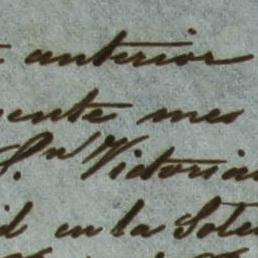 anterior
ente mes
S.n Victorian
id en la Sole